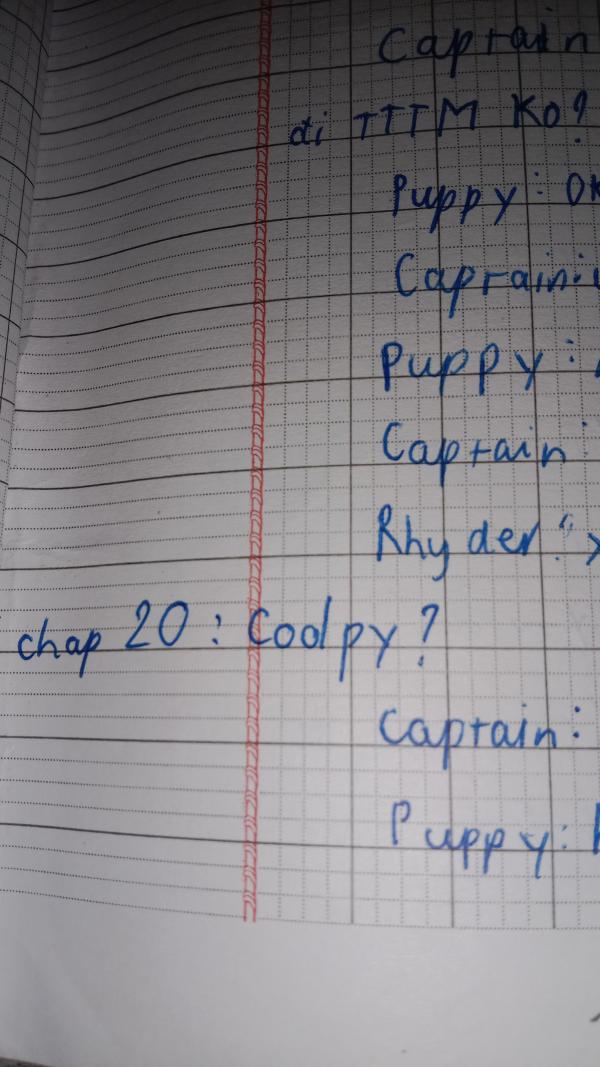 Captain
di TTTM Ko?
Puppy: Ok
Captain:
Puppy:
Captain:
Rhyder: "
chap 20: Coolpy?
Captain:
Puppy: